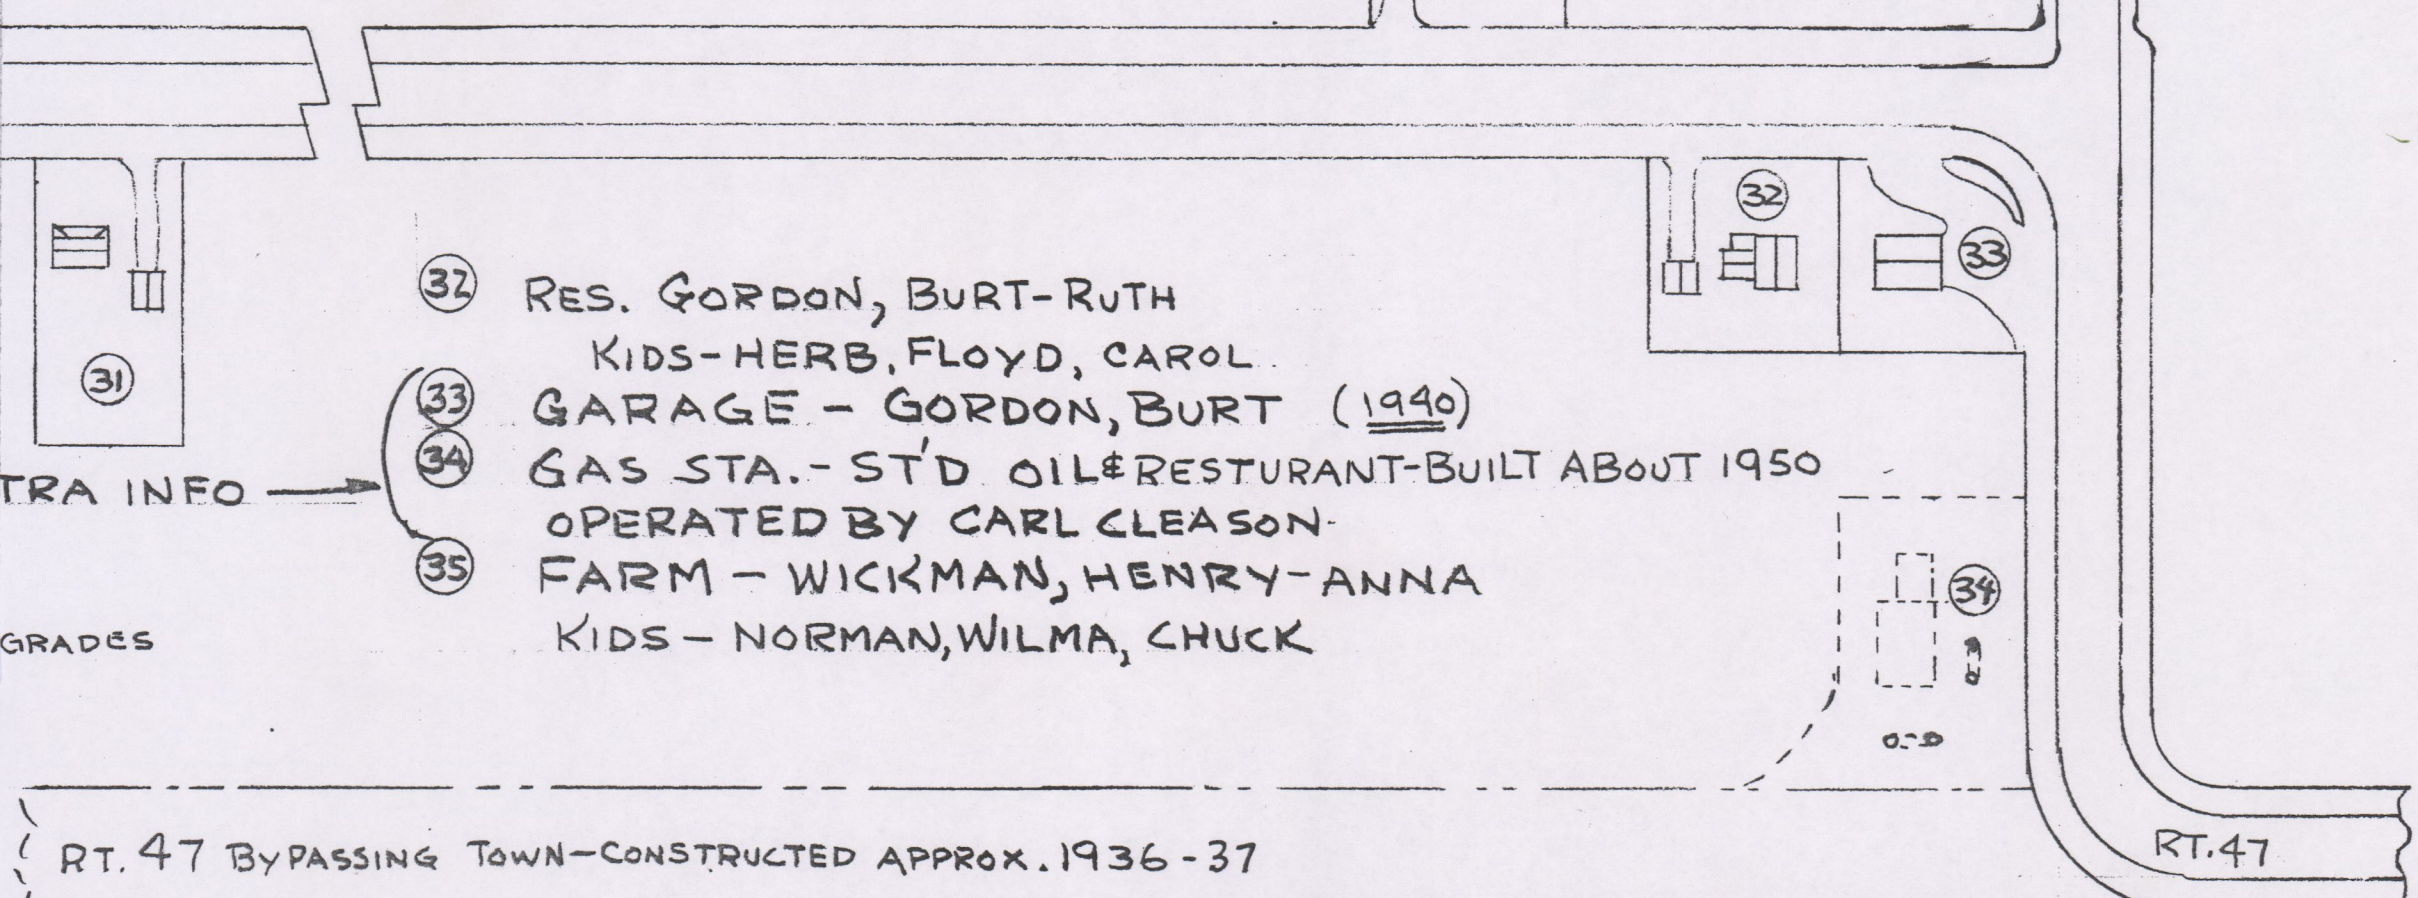 32
33
31
32 RES. GORDON, BURT-RUTH
KIDS-HERB, FLOYD, CAROL
33 GARAGE - GORDON, BURT (1940)
34 GAS STA. - ST'D OIL & RESTURANT-BUILT ABOUT 1950
TRA INFO
OPERATED BY CARL CLEASON
35 FARM - WICKMAN, HENRY-ANNA
34
KIDS - NORMAN, WILMA, CHUCK
GRADES
RT. 47 BYPASSING TOWN-CONSTRUCTED APPROX. 1936-37
RT. 47